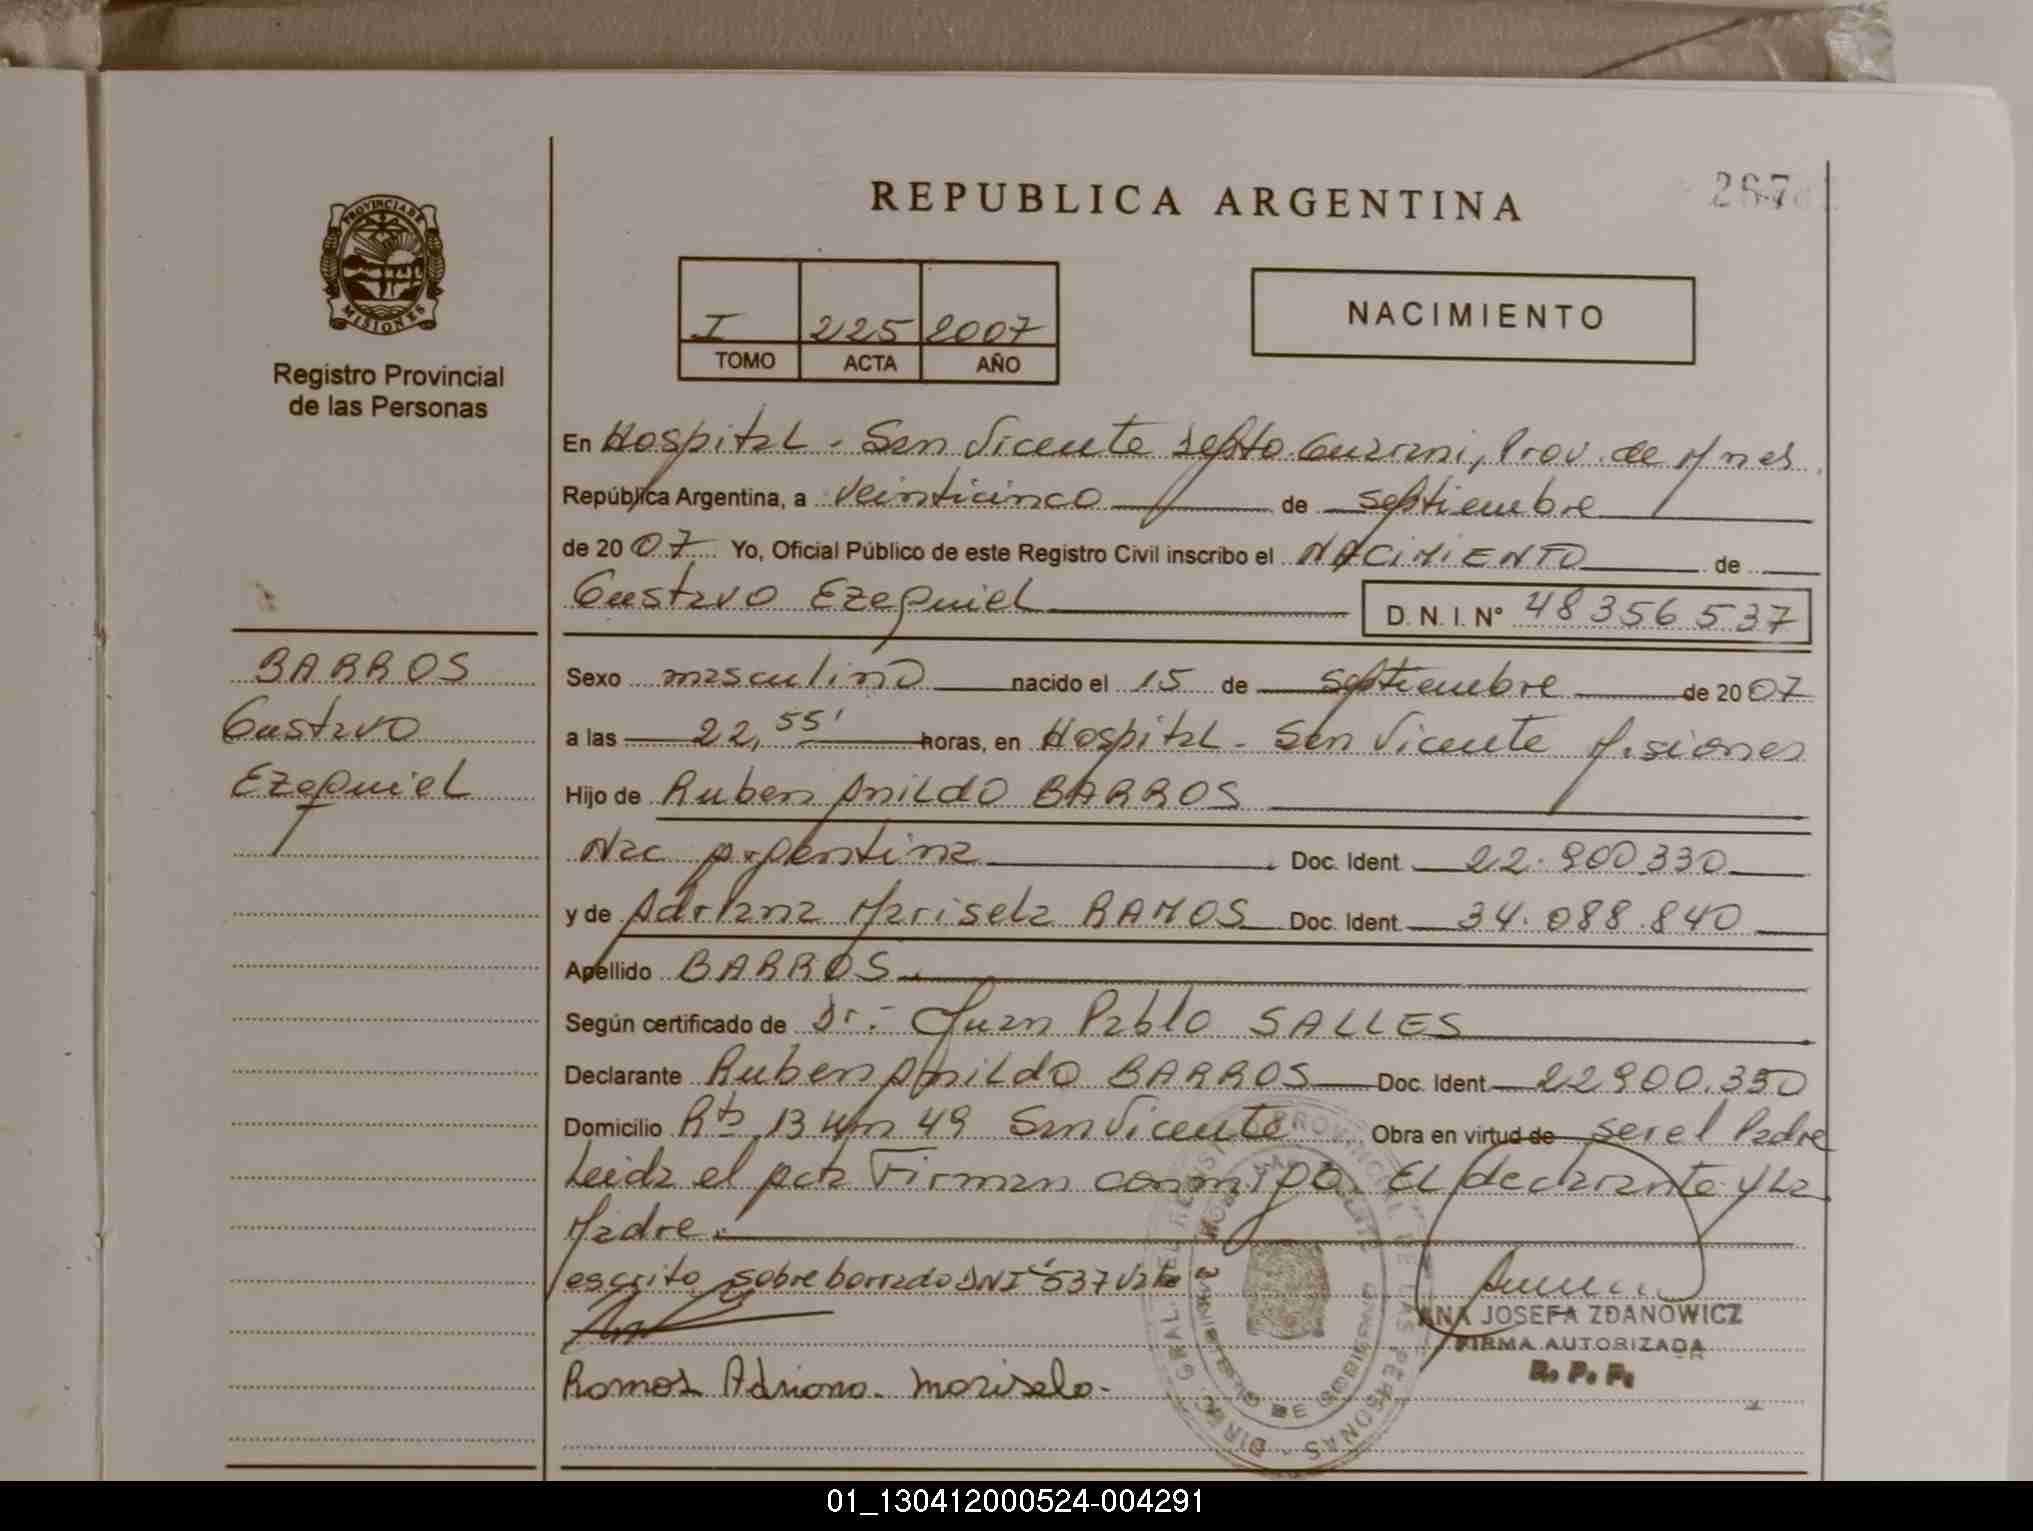 REPUBLICA ARGENTINA
267
PROVINCIA DE
MISIONES
Registro Provincial
de las Personas
I 225 2007
TOMO ACTA AÑO
NACIMIENTO
En Hospital - San Vicente Depto. Guarani, Prov. de Mnes
República Argentina, a veinticinco de septiembre
de 2007 Yo, Oficial Público de este Registro Civil inscribo el NACIMIENTO de
Gustavo Ezequiel D. N. I. N° 48356537
BARROS
Gustavo
Ezequiel
Sexo masculino nacido el 15 de septiembre de 2007
a las 22,55' horas, en Hospital - San Vicente Misiones
Hijo de Ruben Anildo BARROS
Nac Argentina Doc. Ident. 22.900.330
y de Adriana Marisela RAMOS Doc. Ident. 34.088.840
Apellido BARROS.
Según certificado de Dr.- Juan Pablo SALLES
Declarante Ruben Anildo BARROS Doc. Ident. 22900.330
Domicilio Rta 13 Km 49 San Vicente Obra en virtud de ser el Padre
Leida el acta Firman conmigo El declarante y La
Madre.
escrito sobre borrado DNI "537 Vale
Ramos Adriana. Marisela-
ANA JOSEFA ZDANOWICZ
FIRMA AUTORIZADA
R. P. P.
MINISTERIO DE GOBIERNO
01_130412000524-004291